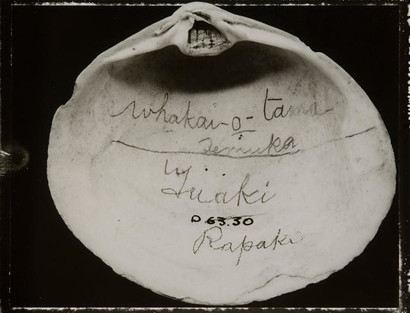 Whakai-o-tama
Temuka
Tiaki
D 63.30
Rapaki